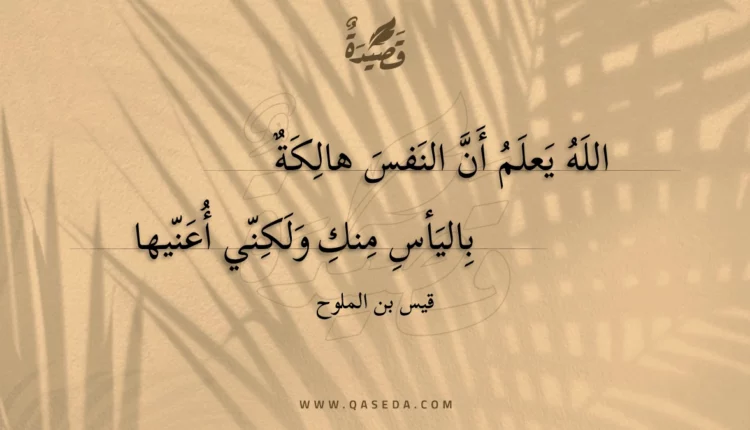 قَصِيْدَةٌ
اللَهُ يَعلَمُ أَنَّ النَفسَ هالِكَةٌ
بِاليَأسِ مِنكِ وَلَكِنّي أُعَنّيها
قيس بن الملوح
WWW.QASEDA.COM